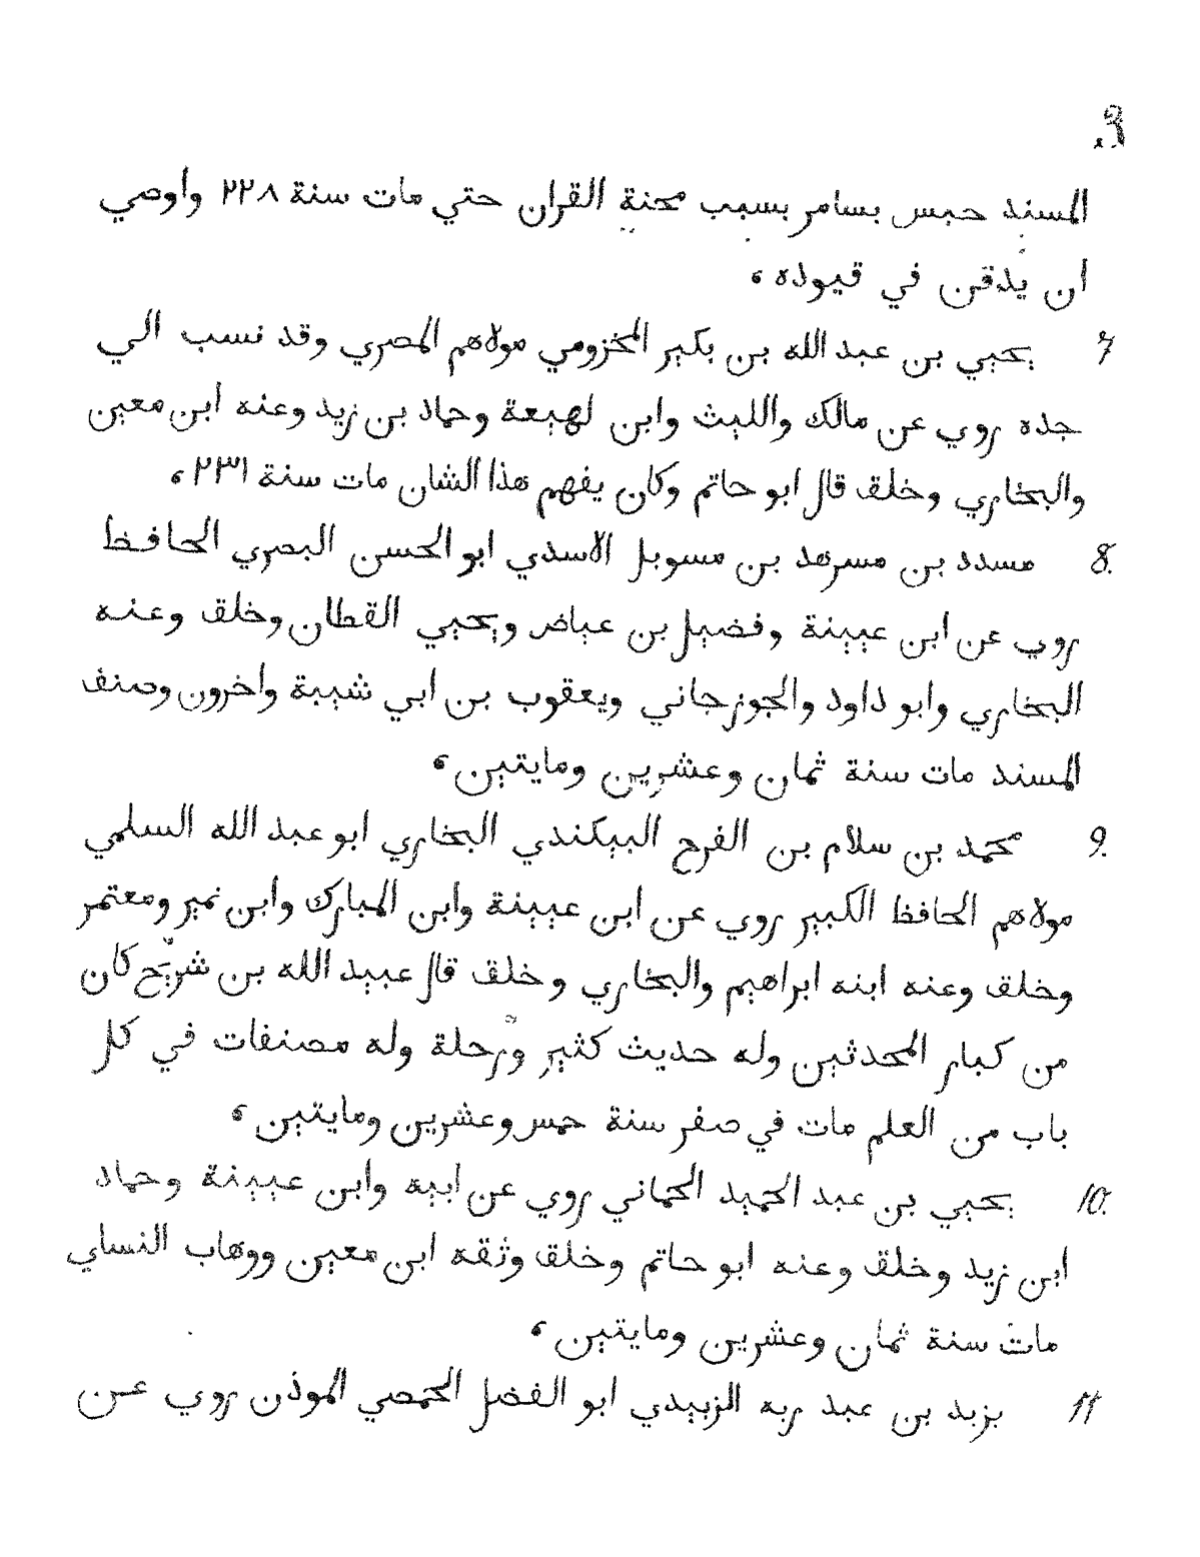 9.
المسند حبس بسامر بسبب محنة القران حتي مات سنة ٢٢٨ واوصي
ان يدقن في قيوده ،
7 يحيي بن عبد الله بن بكير المخزومي مولاهم المصري وقد نسب الي
جده روي عن مالك والليث وابن لهيعة وحماد بن زيد وعنه ابن معين
والبخاري وخلق قال ابو حاتم وكان يفهم هذا الشان مات سنة ٢٣١ ،
8. مسدد بن مسرهد بن مسوبل الاسدي ابو الحسن البصري الحافظ
روي عن ابن عيينة وفضيل بن عياض ويحيي القطان وخلق وعنه
البخاري وابو داود والجوزجاني ويعقوب بن ابي شيبة واخرون وصنف
المسند مات سنة ثمان وعشرين ومايتين ،
9. محمد بن سلام بن الفرح البيكندي البخاري ابو عبد الله السلمي
مولاهم الحافظ الكبير روي عن ابن عيينة وابن المبارك وابن نمير ومعتمر
وخلق وعنه ابنه ابراهيم والبخاري وخلق قال عبيد الله بن شريح كان
من كبار المحدثين وله حديث كثير ورحلة وله مصنفات في كل
باب من العلم مات في صفر سنة خمس وعشرين ومايتين ،
10. يحيي بن عبد الحميد الحماني روي عن ابيه وابن عيينة وحماد
ابن زيد وخلق وعنه ابو حاتم وخلق وثقه ابن معين ووهاب النساي
مات سنة ثمان وعشرين ومايتين ،
11 يزيد بن عبد ربه الزبيدي ابو الفضل الحمصي الموذن روي عن